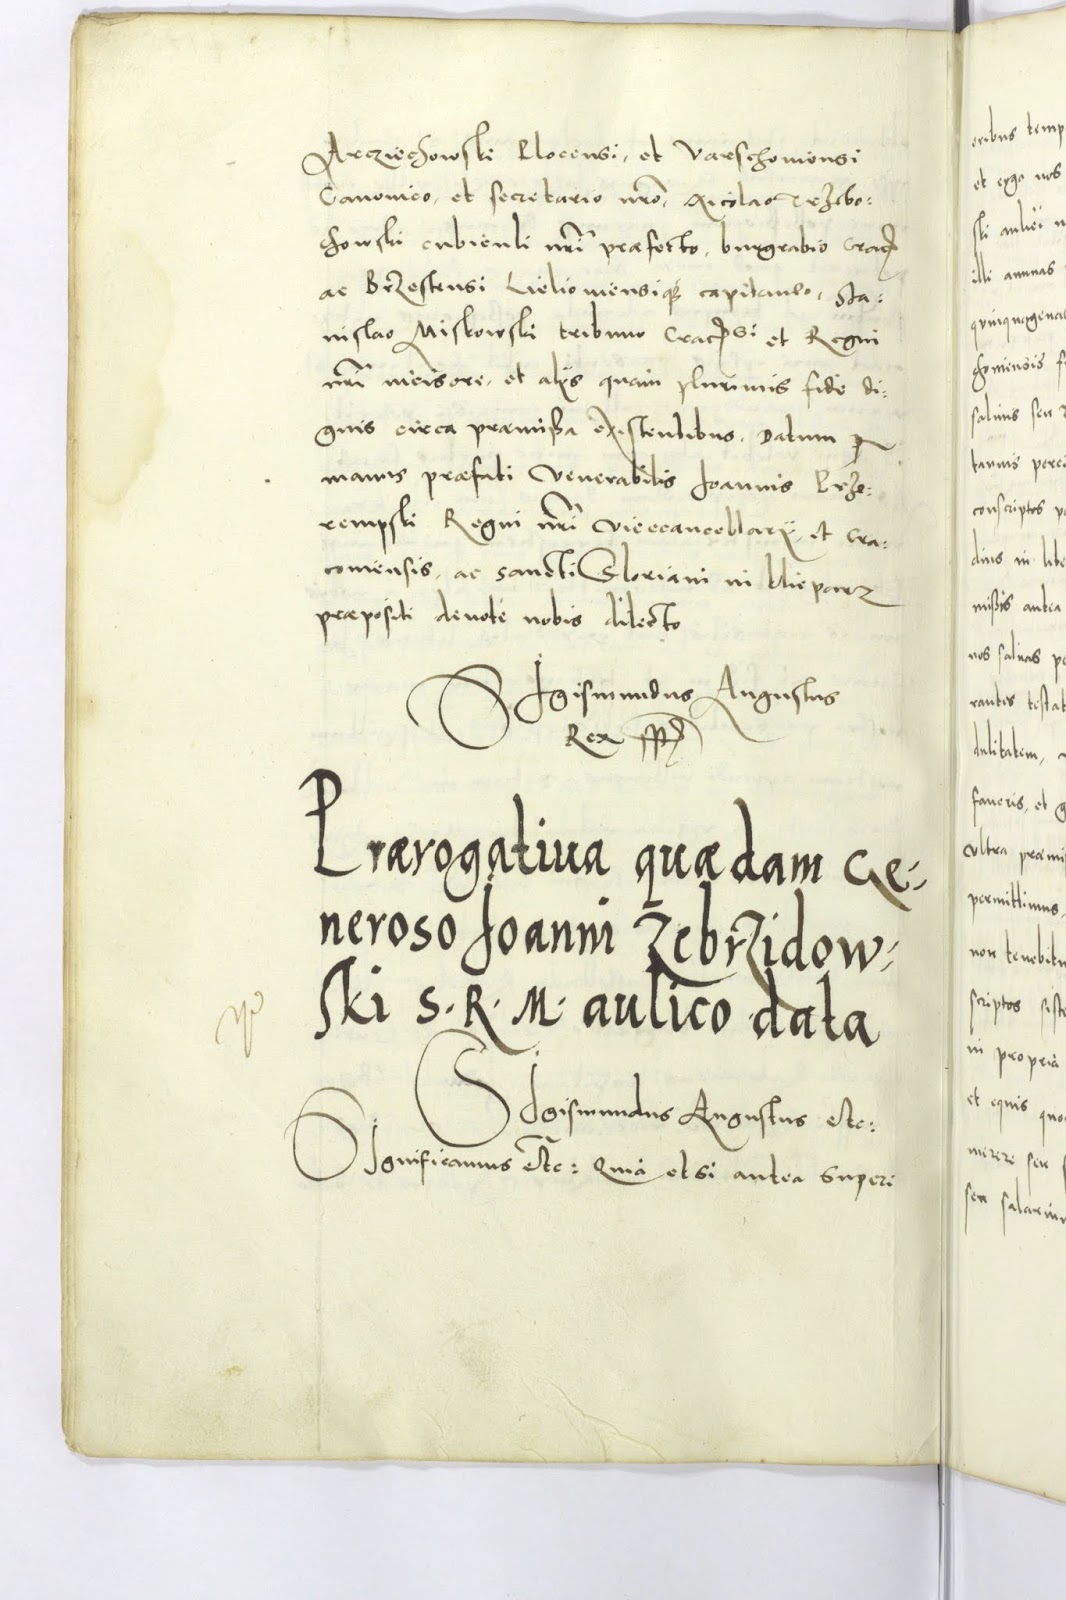 Arcziechowski Plocensi, et Varschoviensi
Canonico, et secretario nrō, Nicolao Trzebo:
chowski cubiculi nrī præfecto, burgrabio Crac̄
ac Brzestensi Lieloviensiq3 capitaneo, Sta:
nislao Miskowski tribuno Cracsi et Regni
nrī incisore, et alijs quam plurimis fide di:
gnis circa præmissa existentibus. Datum p
manus præfati Venerabilis Joannis Prze:
rempski Regni nrī Vicecancellarij, et Cra:
coviensis, ac sancti Floriani in Clieparz
præpositi devote nobis dilecto
Sigismundus Augustus
Rex
Prærogativa quædam Ge:
neroso Joanni Zebrzidow:
ski S. R. M. aulico data
Sigismundus Augustus etc:
Significamus etc: Quia etsi antea superi
eribus temp
et erga nos
ski aulici n
illi annuas
quinquagena
choviensis
salinis seu
conscriptos
dius in lib
missis antea
nos salvas
rantes testa
dulitatem,
faveris, et g
Ultra præmi
permittimus,
non tenebit
scriptos sist
in propria
et equis quo
merere seu
seu salariu